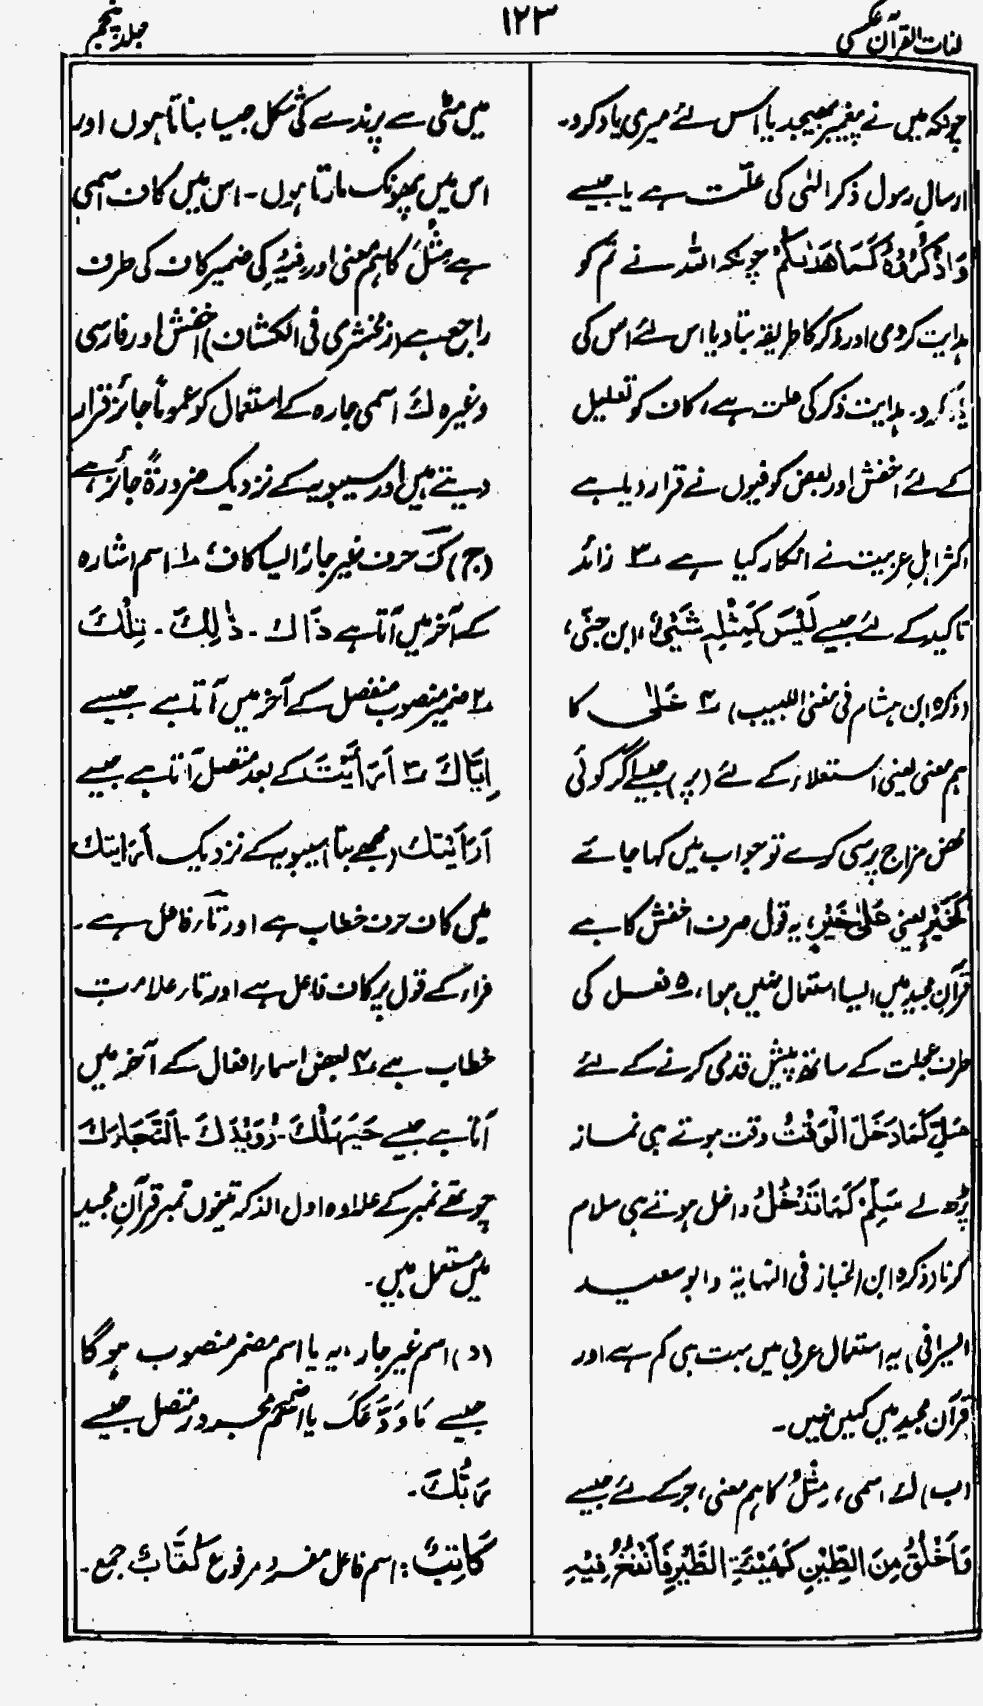 لغات القرآن عکسی
۱۲۳
جلد پنجم
چونکہ میں نے پیغمبر بھیجدیا اس لئے میری یاد کرو۔
ارسالِ رسول ذکر الٰہی کی علّت ہے یا جیسے
وَاذْكُرُوْهُ كَمَا هَدٰىكُمْ چونکہ اللہ نے تم کو
ہدایت کردی اور ذکر کا طریقہ بتا دیا اس لئے اس کی
یاد کرو۔ ہدایت ذکر کی علت ہے، کاف کو تعلیل
کے لئے اخفش اور بعض کوفیوں نے قرار دیا ہے
اکثر اہلِ عربیت نے انکار کیا ہے ۳ زائد
تاکید کے لئے جیسے لَیْسَ كَمِثْلِهٖ شَیْئٌ، (ابن جنّی،
(ذکرہ ابن ہشام فی مغنی اللبیب) ۴ عَلٰی کا
ہم معنی یعنی استعلاء کے لئے (پر) جیسے اگر کوئی
مزاج پرسی کرے تو جواب میں کہا جائے
كَخَیْرٍ یعنی عَلٰی خَیْرٍ، یہ قول صرف اخفش کا ہے
قرآن مجید میں ایسا استعمال نہیں ہوا، ۵ فعل کی
طرف عجلت کے ساتھ پیش قدمی کرنے کے لئے
صَلِّ كَمَا دَخَلَ الْوَقْتُ وقت ہوتے ہی نماز
پڑھ لے سَلِّمْ كَمَا تَدْخُلُ داخل ہوتے ہی سلام
کرنا (ذکرہ ابن الخباز فی النہایۃ و ابو سعید
السیرافی) یہ استعمال عربی میں بہت ہی کم ہے اور
قرآن مجید میں کہیں نہیں۔
(ب) كَ اسمی، مِثْلُ کا ہم معنی، جر کے لئے جیسے
فَاَخْلُقُ مِنَ الطِّیْنِ كَهَیْئَةِ الطَّیْرِ فَاَنْفُخُ فِیْهِ
میں مٹی سے پرندے کی شکل جیسا بناتا ہوں اور
اس میں پھونک مارتا ہوں۔ اس میں کاف اسمی
ہے مِثْلَ کا ہم معنی اور فِیْهِ کی ضمیر کاف کی طرف
راجع ہے (زمخشری فی الکشاف) اخفش اور فارسی
وغیرہ كَ اسمی جارہ کے استعمال کو عموماً جائز قرار
دیتے ہیں اور سیبویہ کے نزدیک ضرورۃً جائز ہے
(ج) كَ حرف غیر جارّ ایسا کاف ۱ اسم اشارہ
کے آخر میں آتا ہے ذَاكَ ۔ ذٰلِكَ ۔ تِلْكَ
۲ ضمیر منصوب منفصل کے آخر میں آتا ہے جیسے
اِیَّاكَ ۳ اَرَاَیْتَ کے بعد متصل آتا ہے جیسے
اَرَاَیْتَكَ (مجھے بتا) سیبویہ کے نزدیک اَرَاَیتَكَ
میں کاف حرف خطاب ہے اور تَاء فاعل ہے۔
فراء کے قول پر کاف فاعل ہے اور تاء علامتِ
خطاب ہے ۴ بعض اسماء افعال کے آخر میں
آتا ہے جیسے حَیَّهَلْكَ ۔ رُوَیْدَكَ ۔ اَلنَّجَاءَكَ
چوتھے نمبر کے علاوہ اول الذکر تینوں نمبر قرآنِ مجید
میں مستعمل ہیں۔
(د) اسم غیر جار، یہ یا اسم مضمر منصوب ہوگا
جیسے مَا وَدَّعَكَ یا اسم مجرور متصل جیسے
رَبُّكَ۔
كَاتِبٌ: اسم فاعل مفرد مرفوع كُتَّابٌ جمع۔